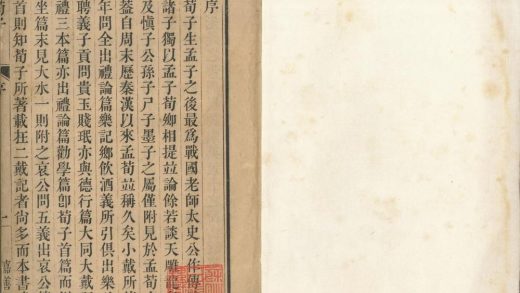 序
荀子生孟子之後最爲戰國老師太史公作傳
諸子獨以孟子荀卿相提竝論餘若談天雕龍
及愼子公孫子尸子墨子之屬僅附見於孟荀
蓋自周末歷秦漢以來孟荀竝稱久矣小戴所
年問全出禮論篇樂記鄉飲酒義所引俱出樂
聘義子貢問貴玉賤珉亦與德行篇大同大戴
禮三本篇亦出禮論篇勸學篇卽荀子首篇而
坐篇末見大水一則附之哀公問五義出哀公
首則知荀子所著載在二戴記者尙多而本書
荀子 序 一 嘉善